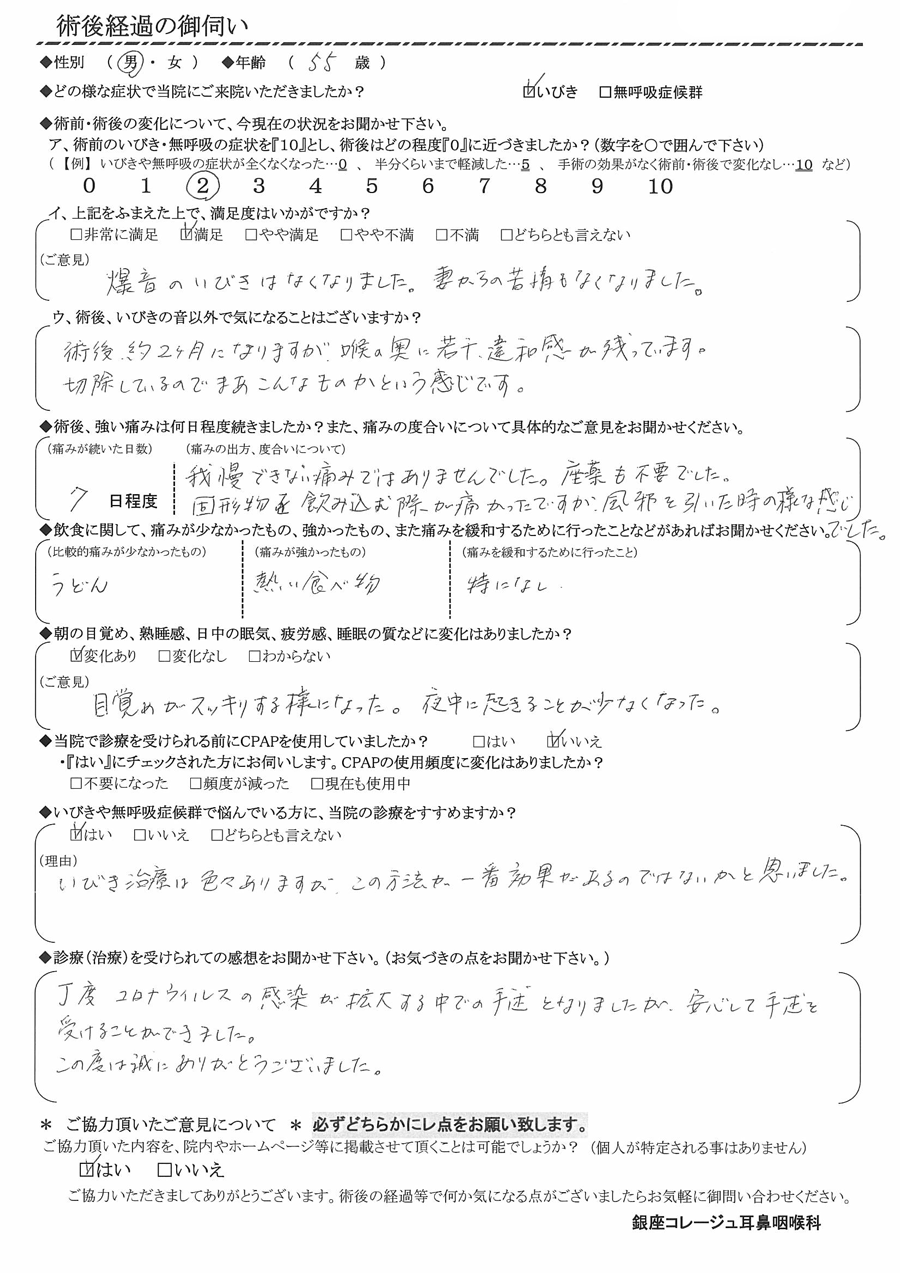 術後経過の御伺い
◆性別 （ 男 ・ 女 ） ◆年齢 （ 55 歳 ）
◆どの様な症状で当院にご来院いただきましたか？ ☑いびき □無呼吸症候群
◆術前・術後の変化について、今現在の状況をお聞かせ下さい。
ア、術前のいびき・無呼吸の症状を『10』とし、術後はどの程度『0』に近づきましたか？（数字を〇で囲んで下さい）
（ 【例】 いびきや無呼吸の症状が全くなくなった…0 、 半分くらいまで軽減した…5 、 手術の効果がなく術前・術後で変化なし…10 など）
0 1 2 3 4 5 6 7 8 9 10
イ、上記をふまえた上で、満足度はいかがですか？
□非常に満足 ☑満足 □やや満足 □やや不満 □不満 □どちらとも言えない
（ご意見）
爆音のいびきはなくなりました。妻からの苦情もなくなりました。
ウ、術後、いびきの音以外で気になることはございますか？
術後、約2ヶ月になりますが、喉の奥に若干、違和感が残っています。
切除しているのでまあこんなものかという感じです。
◆術後、強い痛みは何日程度続きましたか？また、痛みの度合いについて具体的なご意見をお聞かせください。
（痛みが続いた日数） （痛みの出方、度合いについて）
我慢できない痛みではありませんでした。座薬も不要でした。
7 日程度 固形物を飲み込む際が痛かったですが、風邪を引いた時の様な感じ
でした。
◆飲食に関して、痛みが少なかったもの、強かったもの、また痛みを緩和するために行ったことなどがあればお聞かせください。
（比較的痛みが少なかったもの） （痛みが強かったもの） （痛みを緩和するために行ったこと）
うどん 熱い食べ物 特になし.
◆朝の目覚め、熟睡感、日中の眠気、疲労感、睡眠の質などに変化はありましたか？
☑変化あり □変化なし □わからない
（ご意見）
目覚めがスッキリする様になった。夜中に起きることが少なくなった。
◆当院で診療を受けられる前にCPAPを使用していましたか？ □はい ☑いいえ
・『はい』にチェックされた方にお伺いします。CPAPの使用頻度に変化はありましたか？
□不要になった □頻度が減った □現在も使用中
◆いびきや無呼吸症候群で悩んでいる方に、当院の診療をすすめますか？
☑はい □いいえ □どちらとも言えない
（理由）
いびき治療は色々ありますが、この方法が一番効果があるのではないかと思いました。
◆診療（治療）を受けられての感想をお聞かせ下さい。（お気づきの点をお聞かせ下さい。）
丁度コロナウィルスの感染が拡大する中での手述となりましたが、安心して手述を
受けることができました。
この度は誠にありがとうございました。
＊ ご協力頂いたご意見について ＊ 必ずどちらかにレ点をお願い致します。
ご協力頂いた内容を、院内やホームページ等に掲載させて頂くことは可能でしょうか？（個人が特定される事はありません）
☑はい □いいえ
ご協力いただきましてありがとうございます。術後の経過等で何か気になる点がございましたらお気軽に御問い合わせください。
銀座コレージュ耳鼻咽喉科